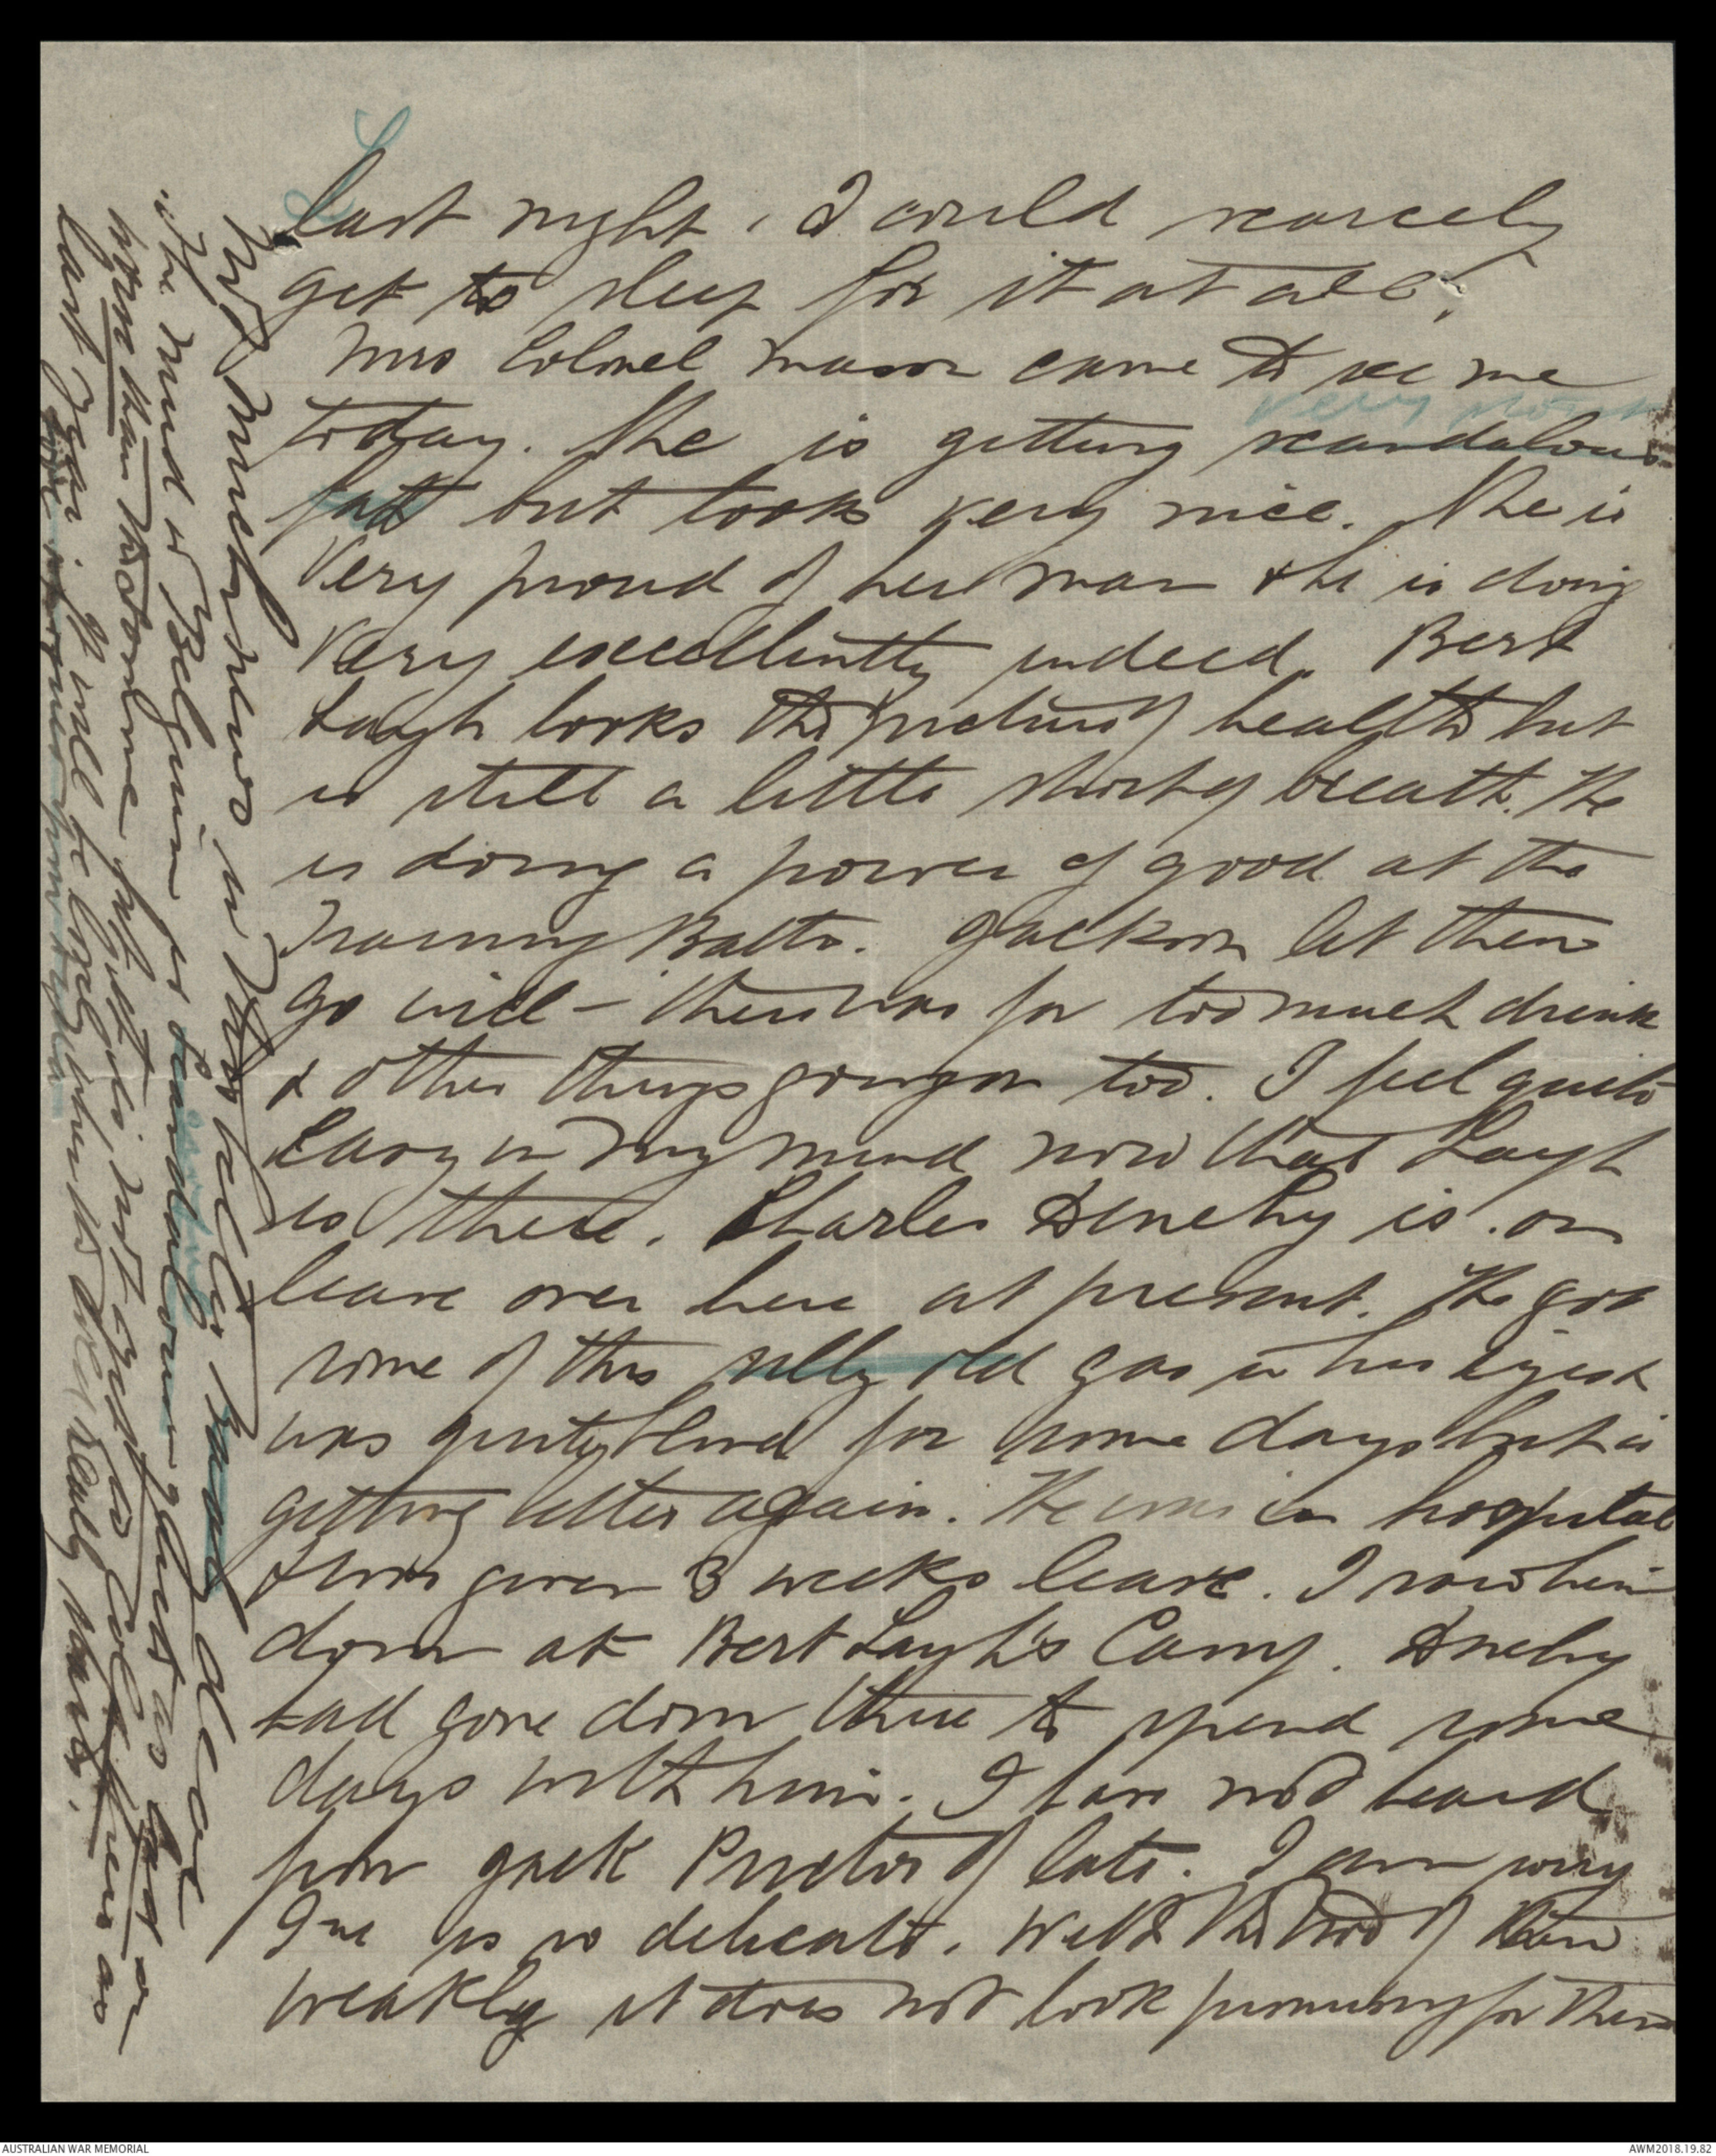 last night, I could scarcely
get to sleep for it at all.
Mrs Colonel Mason came to see me
very stout
today. She is getting scandalous
fat but looks very nice. She is
very proud of her man & he is doing
very excellently indeed. Bert
Layh looks the picture of health but
is still a little short of breath. He
is doing a power of good at the
Training Battn. Jackson let them
go wild – there was far too much drink
& other things going on too. I feel quite
easy in my mind now that Layh
is there. Charles Denehy is on
leave over here at present. He got
some of this silly old gas in his eyes &
was quite blind for some days but is
getting better again. He was in hospital
& was given 3 weeks leave. I saw him
down at Bert Layh's Camp. Denehy
had gone down there to spend some
days with him. I have not heard
from Jack Proctor of late. I am sorry
is so delicate. With the two of them
weakly it does not look promising for them
in his hello Band dear
The mud in Belgium is scandalous just as bad or
worse than the Somme but quite not quite so cold here as
last year. It will be cold when the does really start.
AUSTRALIAN WAR MEMORIAL
AWM2018.19.82